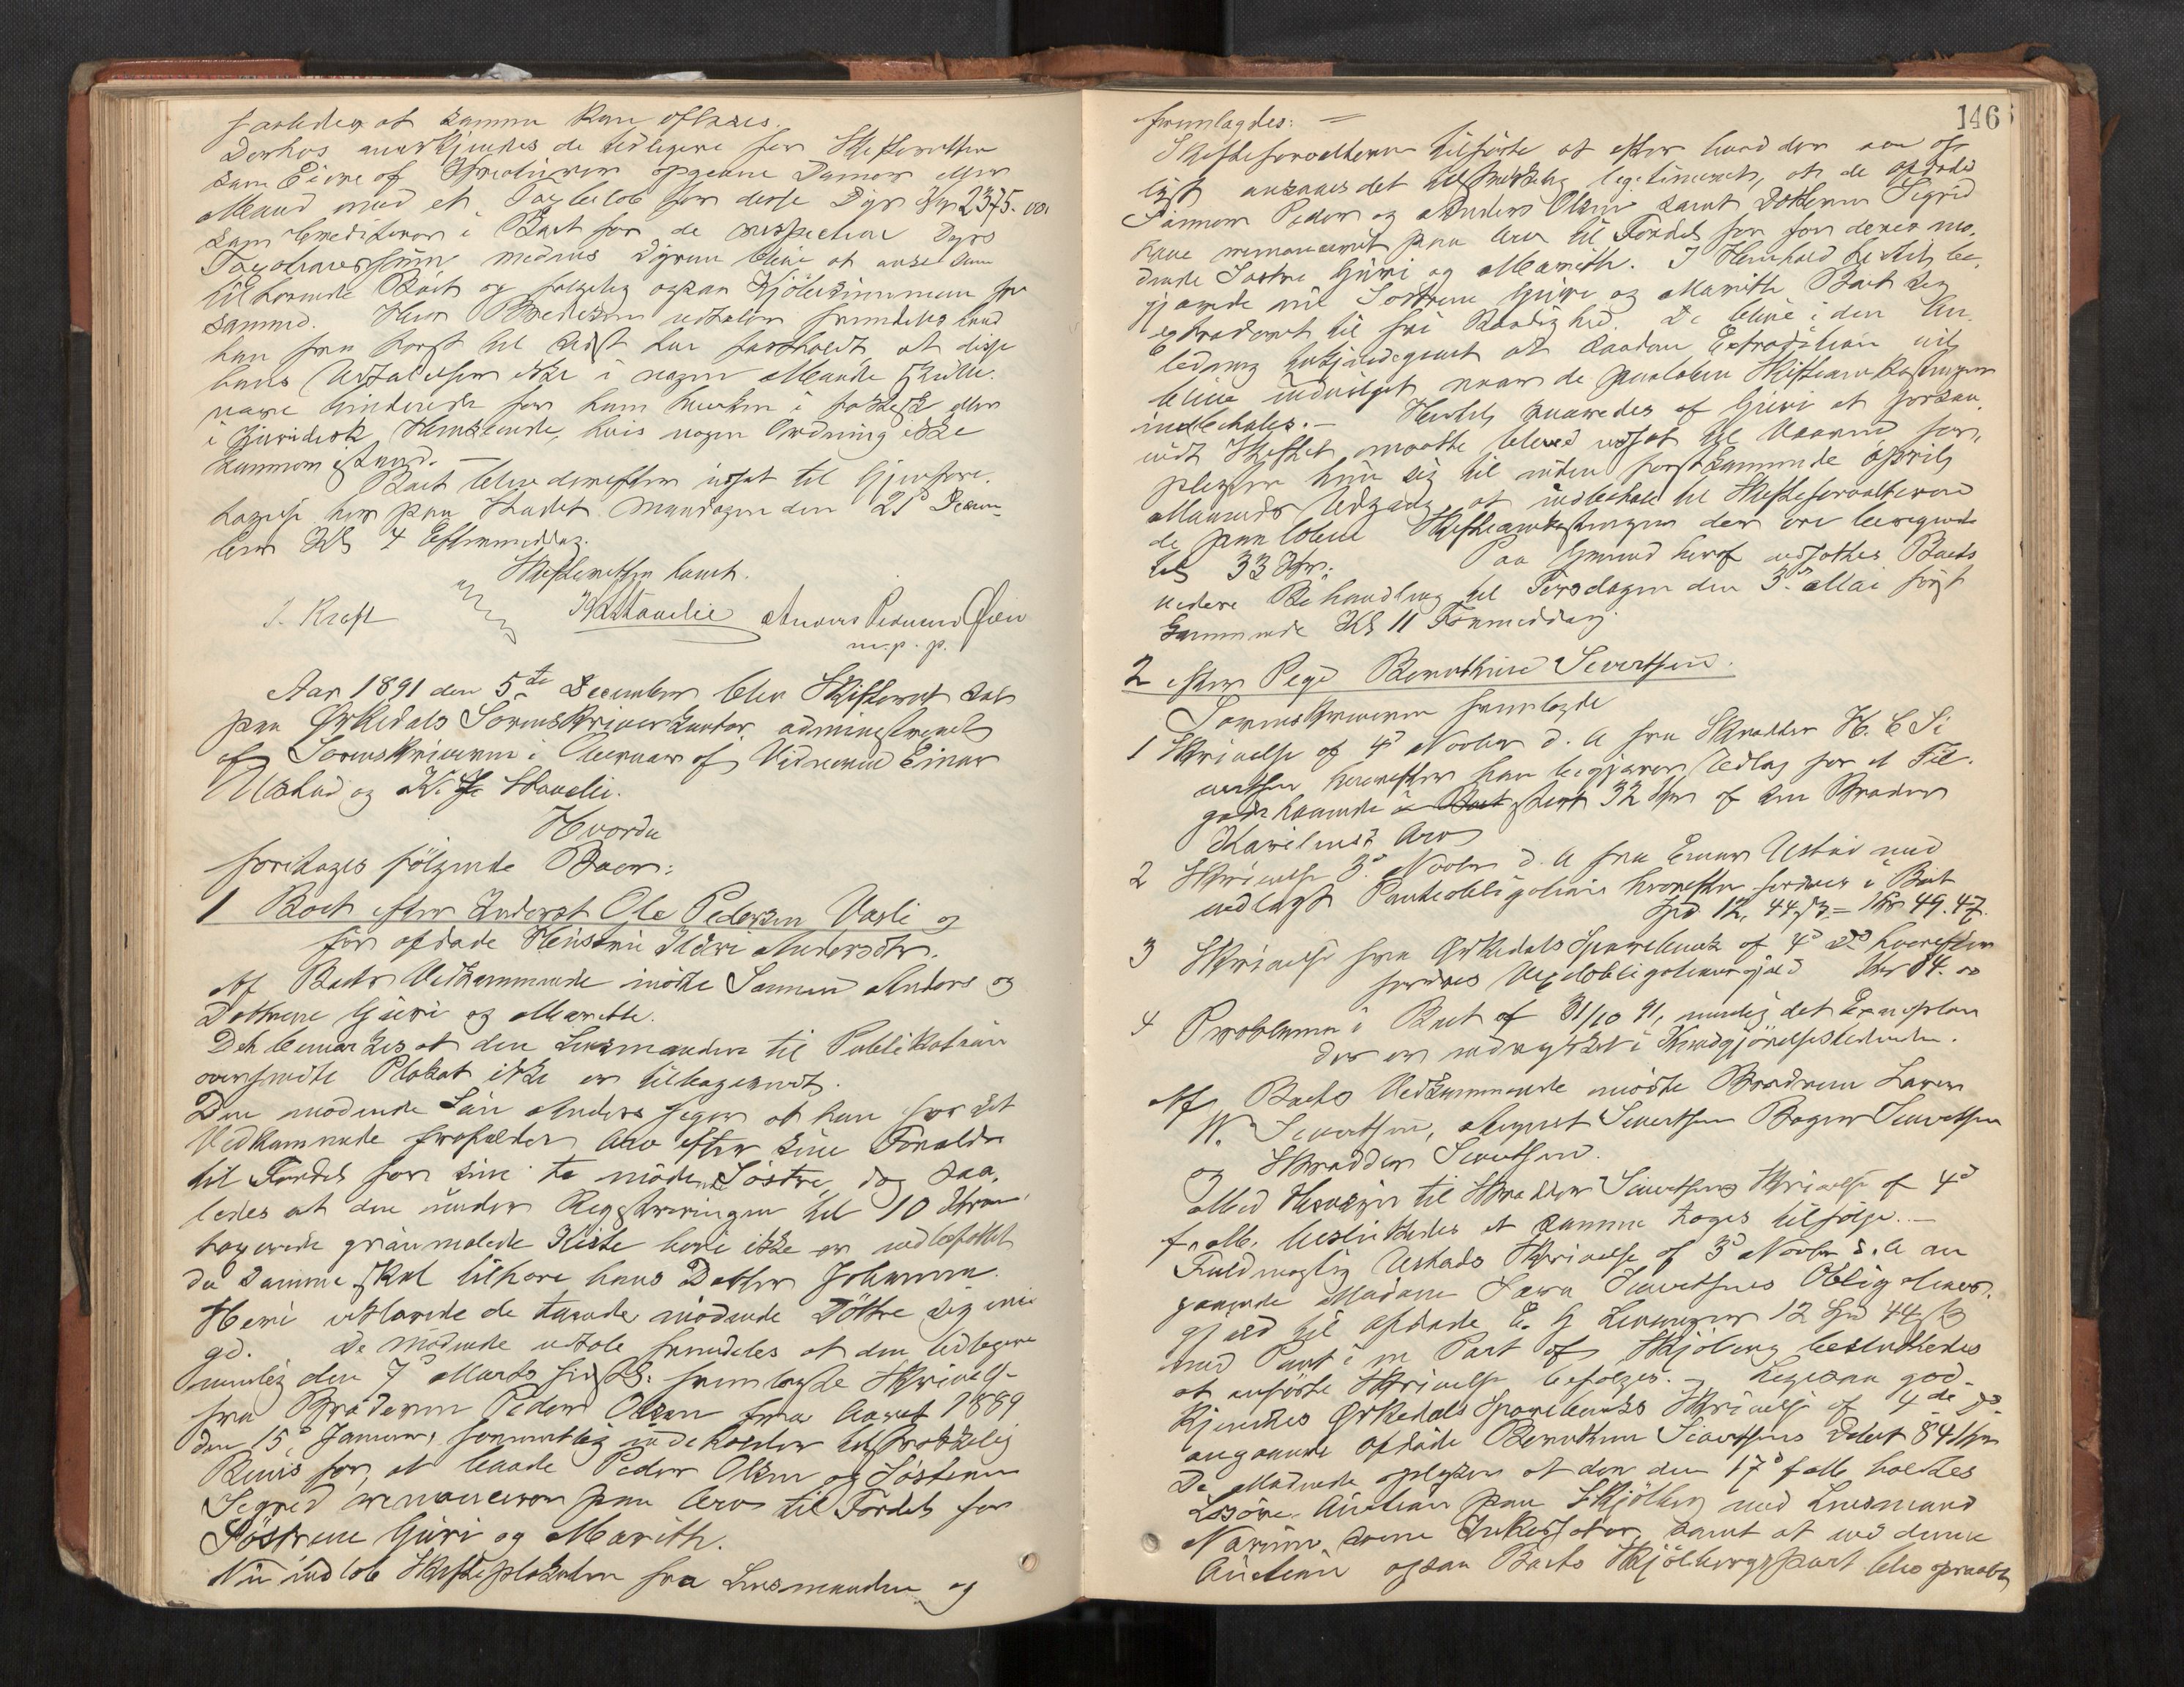 saaledes at samme kan oplases.
Derhos anerkjendes de tidligere for Skifteretten
som Eiere af Kreaturer opgivne Damer eller
Mænd med et Taxbeløb for disse Dyr Kr 2375.00
som Creditorer i Boet for de respective Dyrs
Taxationssum medens Dyrene blive at anse som
tilhørende Boet og følgelig ogsaa Kjøbesummen for
samme. Herr Bredesen udtaler fremdeles hvad
han fra først til sidst har fastholdt at disse
hans Udtalelser ikke i nogen Maade skulle
være hindrende for ham hverken i faktisk eller
i juridisk Henseende, hvis nogen Ordning ikke
kommer istand. —
Boet blev derefter udsat til Gjenfore-
tagelse her paa Stedet Mandagen den 21de Decem-
ber Kl 4 Eftermiddag.
Skifteretten hævet.
J. Kraft K Hauelie Anders Pedersen Øien
m. p. p.
Aar 1891 den 5te December blev Skifteret sat
paa Ørkedals Sorenskriverkontor, administreret
af Sorenskriveren i Overvær af Vidnerne Einar
Ustad og K. Havelie.
Hvorda
foretages følgende Boer:
1 Boet efter Inderst Ole Pedersen Vasli og
før afdøde Hustru Ildri Andersdtr.
Af Boets Vedkommende mødte Sønnen Anders og
Døttrene Guri og Marith.
Det bemærkes at den Lensmanden til Publikation
oversendte Plakat ikke er tilbagesendt.
Den mødende Søn Anders siger at han for sit
Vedkommende frafalder Arv efter sine Forældre
til Fordel for sine to mødende Søstre, dog saa-
ledes at den under Registreringen til 10 Kroner
taxerede graamalede Kiste heri ikke er indbefattet
da samme skal tilhøre hans Datter Johanna.
Heri erklærede de tvende mødende Døttre sig eni-
ge. De Mødende udtale fremdeles at den tidligere
nemlig den 7de Marts sidstl. fremlagde Skrivelse
fra Broderen Peder Olsen fra Aaret 1889
den 15de Januar, formentlig indeholder tilstrækkelig
Bevis for, at baade Peder Olsen og Søsteren
Sigrid renoncerer paa Arv til Fordel for
Søstrene Guri og Marith.
Nu indløb Skifteplakaten fra Lensmanden og
146
fremlagdes: —
Skifteforvalteren tilførte at efter hvad der var op-
lyst ansaaes det tilstrækkelig legitimeret, at de afdødes
Sønner Peder og Anders Olsen samt Datteren Sigrid
have renonceret paa Arv til Fordel for for deres mø-
dende Søstre Guri og Marith. I Henhold hertil be-
gjærede nu Søstrene Guri og Marith Boet sig
extraderet til fri Raadighed. De bleve i den An-
ledning tilkjendegivet at saadan Extradition vil
blive indvilget naar de paaløbne Skifteomkostninger
indbetales. — Hertil svaredes af Guri at forsaa-
vidt Skiftet maatte blive udsat til Vaaren for-
pligter hun sig til inden førstkommende Aprils
Maaneds Udgang at indbetale til Skifteforvalteren
de paaløbne Skifteomkostninger der ere beregnede
til 33 Kr. Paa Grund heraf udsattes Boets
videre Behandling til Tirsdagen den 3de Mai først
kommende Kl 11 Formiddag.
2 efter Pige Bernthine Sivertsen.
Sorenskriveren fremlagde
1 Skrivelse af 4de Novbr d. A fra Skrædder H. C Si
vertsen hvorefter han begjærer Udlæg for et Til-
godehavende stort 32 Kr af sin Broder
Karelius's Arv
2 Skrivelse 3de Novbr d. A fra Einar Ustad med
vedlagt Panteobligation hvorefter fordres i Boet
Spd 12, 44 ß = Kr 49.47.
3 Skrivelse fra Ørkedals Sparebank af 4de ds hvorefter
fordres Vexelobligationsgjæld Kr 84.00
4 Proklama i Boet af 31/10 91, nemlig det Exemplar
der er indrykket i Kundgjørelsestidende.
Af Boets Vedkommende mødte Brødrene Laren
N. Sivertsen, August Sivertsen Bager Sivertsen
og Skrædder Sivertsen.
Med Hensyn til Skrædder Sivertsens Skrivelse af 4de
f. M. besluttedes at samme tages tilfølge. —
Fuldmægtig Ustads Skrivelse af 3de Novbr d. A an
gaaende Madame Sara Sivertsens Obligations-
gjæld til afdøde E. G Levanger 12 Spd 44 ß
med Pant i en Part af Skjølberg besluttedes
at anførte Skrivelse befølges. — Ligesaa god-
kjendtes Ørkedals Sparebanks Skrivelse af 4de ds
angaaende afdøde Bernthine Sivertsens Debet 84 Kr
De Mødende oplyser at der den 17de f M holdtes
Løsøre Auktion paa Skjølberg med Lensmand
som Inkassator, samt at ved denne
Auction ogsaa Boets Skjølbergspart blev opraabt